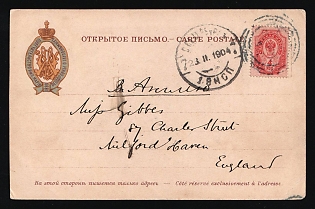 ОТКРЫТОЕ ПИСЬМО. — CARTE POSTALE
23. II. 1904
Въ Англію
Miss Gibbes
87, Charles Street
Milford Haven
England
На этой сторонѣ пишется только адресъ. — Côté réservé exclusivement à l'adresse.